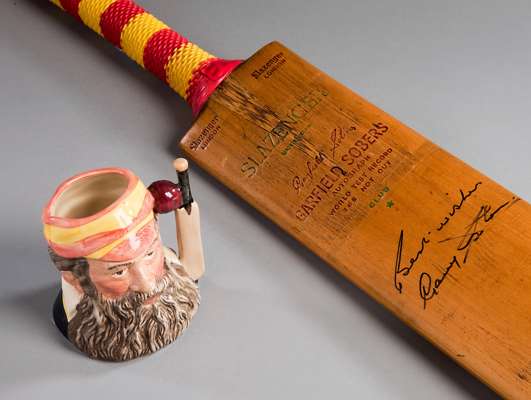 Slazenger
LONDON
Slazenger
LONDON
SLAZENGER
Garfield Sobers
GARFIELD SOBERS
AUTOGRAPH
WORLD TEST RECORD
365 NOT OUT
CLUB
Best wishes
Garry Sobers